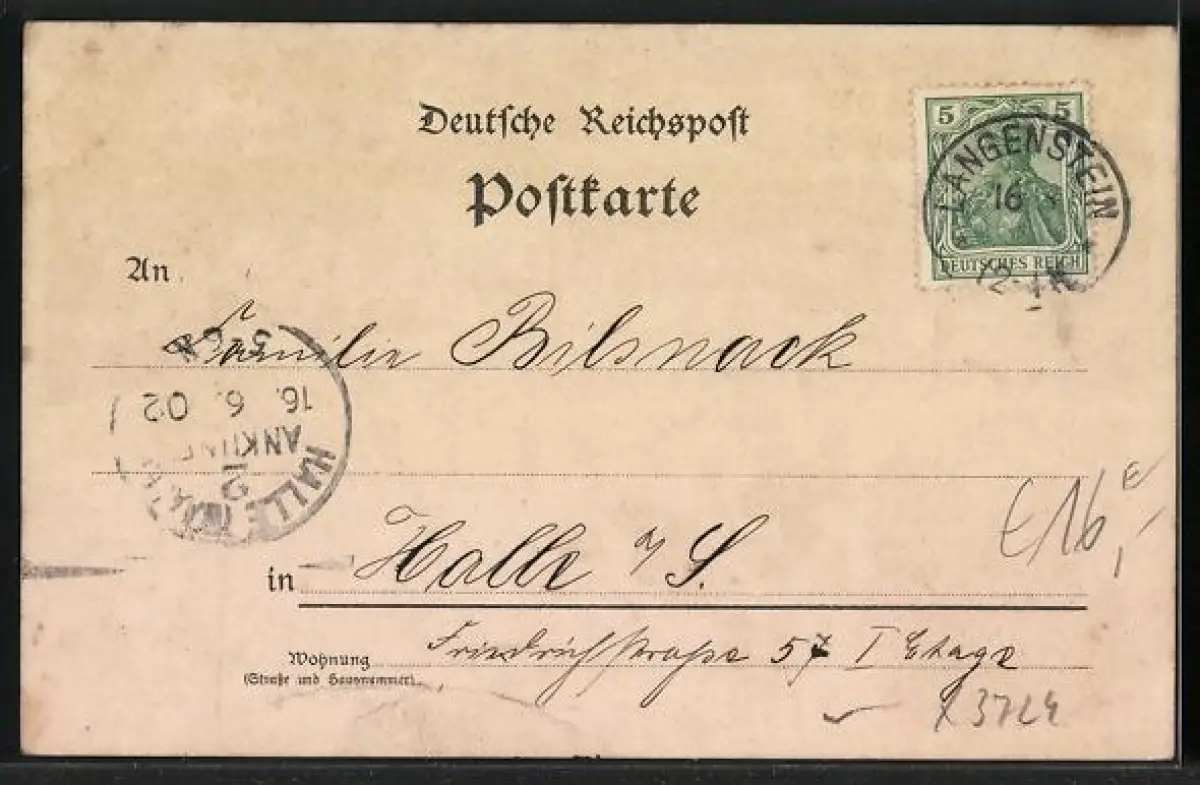 Deutsche Reichspost
Postkarte
5 5
LANGENSTEIN
16
DEUTSCHES REICH
12-1N
An
Familie Bilsnack
16. 6. 02
ANKUNFT
2
HALLE
in Halle a/S.
Wohnung Friedrichstrasse 57 I Etage
(Straße und Hausnummer)
€16,-
3724